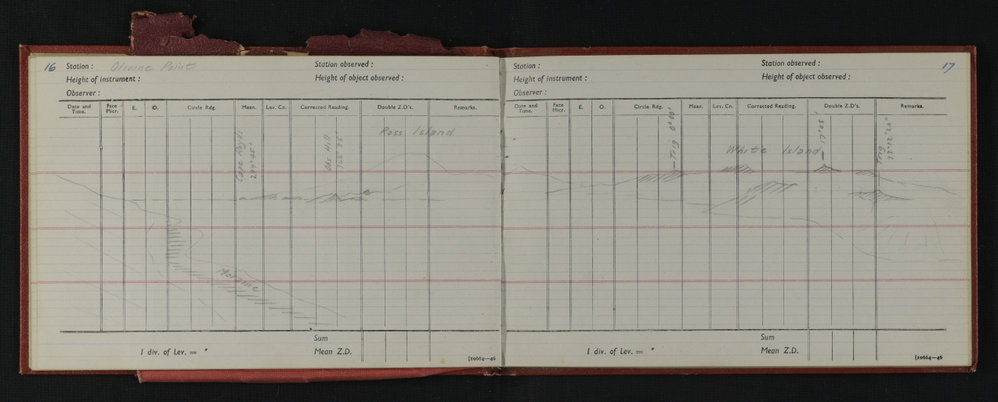 16 Station : Olivine Point Station observed :
Height of instrument : Height of object observed :
Observer :
Date and Time. Face Micr. E. O. Circle Rdg. Mean. Lev. Cn. Corrected Reading. Double Z.D's. Remarks.
Cape Royds
Obs Hill
Ross Island
Moraine
Sum
1 div. of Lev. = " Mean Z.D. [10664—46
Station : Station observed : 17
Height of instrument : Height of object observed :
Observer :
Date and Time. Face Micr. E. O. Circle Rdg. Mean. Lev. Cn. Corrected Reading. Double Z.D's. Remarks.
Trig 0°00'
White Island
17°05'
Trig
Sum
1 div. of Lev. = " Mean Z.D. [10664—46